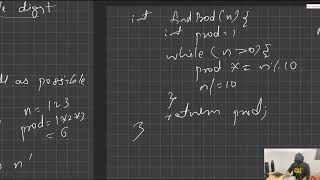 digit
as possible
n = 123
prod = 1*2*3
= 6
n'
int findProd(n){
int prod = 1
while(n>0){
prod *= n%10
n/=10
}
return prod;
}